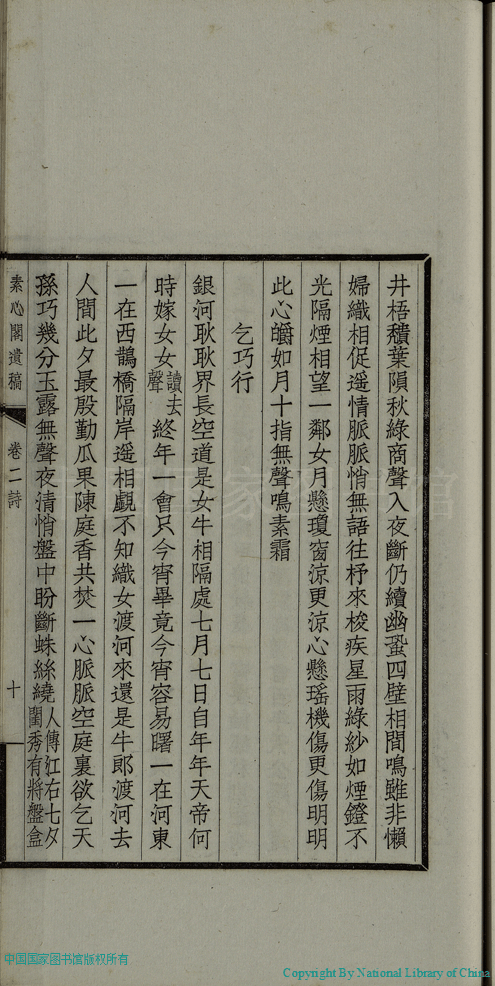 井梧穨葉隕秋綠商聲入夜斷仍續幽蛩四壁相間鳴雖非懶
婦織相促遥情脈脈悄無語往杼來梭疾星雨綠紗如煙鐙不
光隔煙相望一鄰女月懸瓊窗涼更涼心懸瑶機傷更傷明明
此心皭如月十指無聲鳴素霜
乞巧行
銀河耿耿界長空道是女牛相隔處七月七日自年年天帝何
時嫁女女讀去聲終年一會只今宵畢竟今宵容易曙一在河東
一在西鵲橋隔岸遥相覷不知織女渡河來還是牛郎渡河去
人間此夕最殷勤瓜果陳庭香共焚一心脈脈空庭裏欲乞天
孫巧幾分玉露無聲夜清悄盤中盼斷蛛絲繞人傳江右七夕閨秀有將盤盒
素心閣遺稿
卷二詩
十
中国国家图书馆版权所有
Copyright By National Library of China